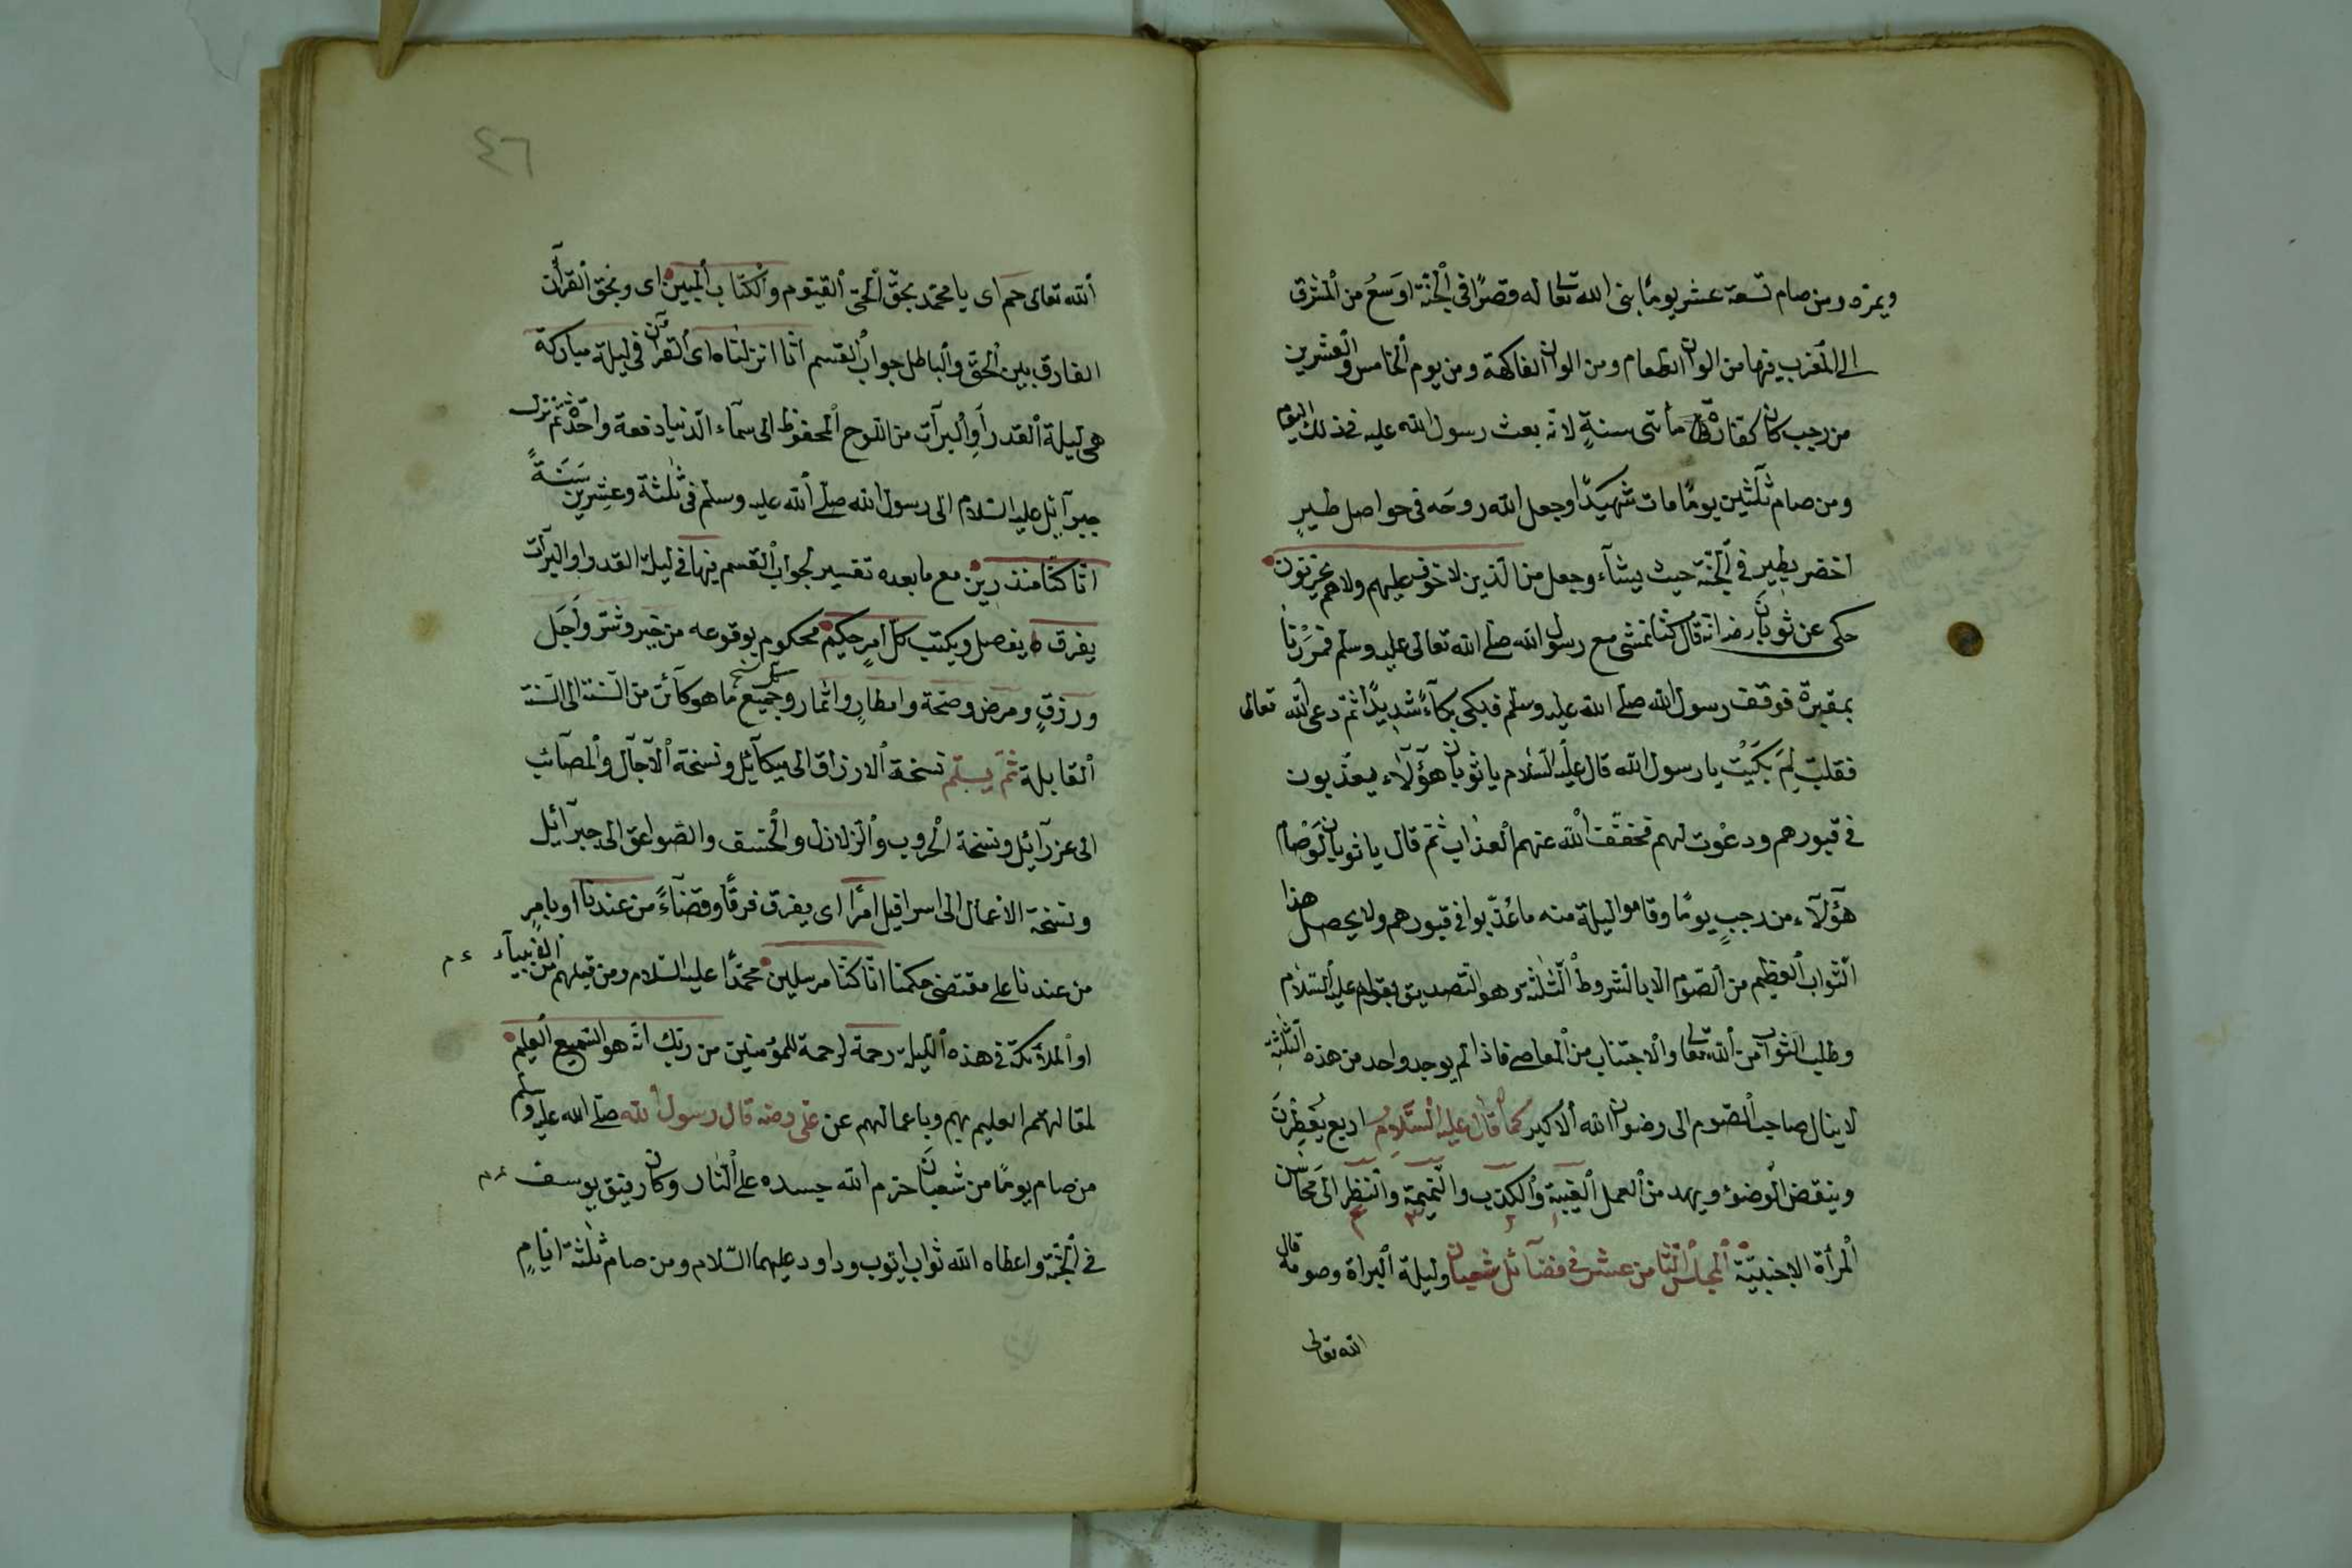 ويمزه ومن صام تسعة عشر يومًا بنى الله تعالى له قصرًا في الجنّة اوسَعُ من المشرق
الى المغرب فيها من الوان الطعام ومن الوان الفاكهة ومن يوم الخامس والعشرين
من رجب كان كفّارة مأتى سنةٍ لانّه بعث رسول الله عليه فى ذلك اليوم
ومن صام ثلثين يومًا مات شهيدًا وجعل الله روحَه فى حواصل طيرٍ
اخضر يطير في الجنّة حيث يشآء وجعل من الّذين لا خوف عليهم ولا هم يحزنون
حكى عن ثوبانَ رضه انّه قال كنّا نمشى مع رسول الله صلّى الله تعالى عليه وسلم فمَرَرْنا
بمقبرة فوقف رسول الله صلّى الله عليه وسلّم فبكى بكآءً شديدًا ثمّ دعى الله تعالى
فقلتُ لِمَ بَكَيْتَ يا رسول الله قال عليه السّلام يا ثوبان هؤلآء يعذّبون
في قبورهم ودعوت لهم فخفّف الله عنهم العذاب ثمّ قال يا ثوبان لَوْ صَام
هؤلآء من رجبٍ يومًا وقاموا ليلة منه ما عُذّبوا في قبورهم ولا يحصل هذا
الثّواب العظيم من الصّوم الّا بالشّروط الثّلثة وهو التّصديق بقوله عليه السّلام
وطلب الثّواب من الله تعالى والاجتناب من المعاصى فاذا لم يوجد واحد من هذه الثّلثة
لا ينال صاحب الصّوم الى رضوان الله الاكبر كما قال عليه السّلام اربع يُفطِرنَ
وينقض الوضوء ويهد من العمل الغيبة والكذب والنّميمة والنّظر الى مَحَاسن
المرأة الاجنبيّة المجلس الثّامن عشر فى فضآئل شعبان وليلة البراة وصومه قال
الله تعالى
٤٦
الله تعالى حم اى يا محمّد بحقّ الحىّ القيّوم والكتاب المبين اى وبحقّ القرأن
الفارق بين الحقّ والباطل جواب القسم انّا انزلناه اى القرأن فى ليلة مباركة
هى ليلة القدر اَوِ البرآت من اللّوح المحفوظ الى سمآء الدّنيا دفعة واحدة ثمّ نزل
جبرآئيل عليه السّلام الى رسول الله صلّى الله عليه وسلّم فى ثلثة وعشرين سَنَةً
انّا كنّا منذرين مع ما بعده تفسير لجواب القسم فيها فى ليلة القدر او البرآت
يفرق يفصل ويكتب كلّ امرٍ حكيم محكوم بوقوعه من خير وشرّ واَجَل
ورزقٍ ومرض وصحّة وامطارٍ واثمار وجميع ما هو كآئن من السّنة الى السّنة
القابلة ثمّ يسلّم نسخة الارزاق الى ميكآئيل ونسخة الآجال والمصآئب
الى عزرآئيل ونسخة الحروب والزلازل والخسف والصّواعق الى جبرآئيل
ونسخة الاعمال الى اسرافيل امرًا اى يفرق فرقًا وقضآءً من عندنا او بامرٍ
من عندنا على مقتضى حكمنا انّا كنّا مرسلين محمّدًا عليه السّلام ومن قبلهم من الانبيآء ع م
او الملآئكة فى هذه اللّيلة رحمة لرحمة للمؤمنين من ربّك انّه هو السّميع العليم
لمقالهم العليم بهم وباعمالهم عن على رضه قال رسول الله صلّى الله عليه وسلّم
من صام يومًا من شعبانَ حرّم الله جسده على النّار وكان رفيق يوسف ع م
فى الجنّة واعطاه الله ثواب ايّوب وداود عليهما السّلام ومن صام ثلثة ايّامٍ